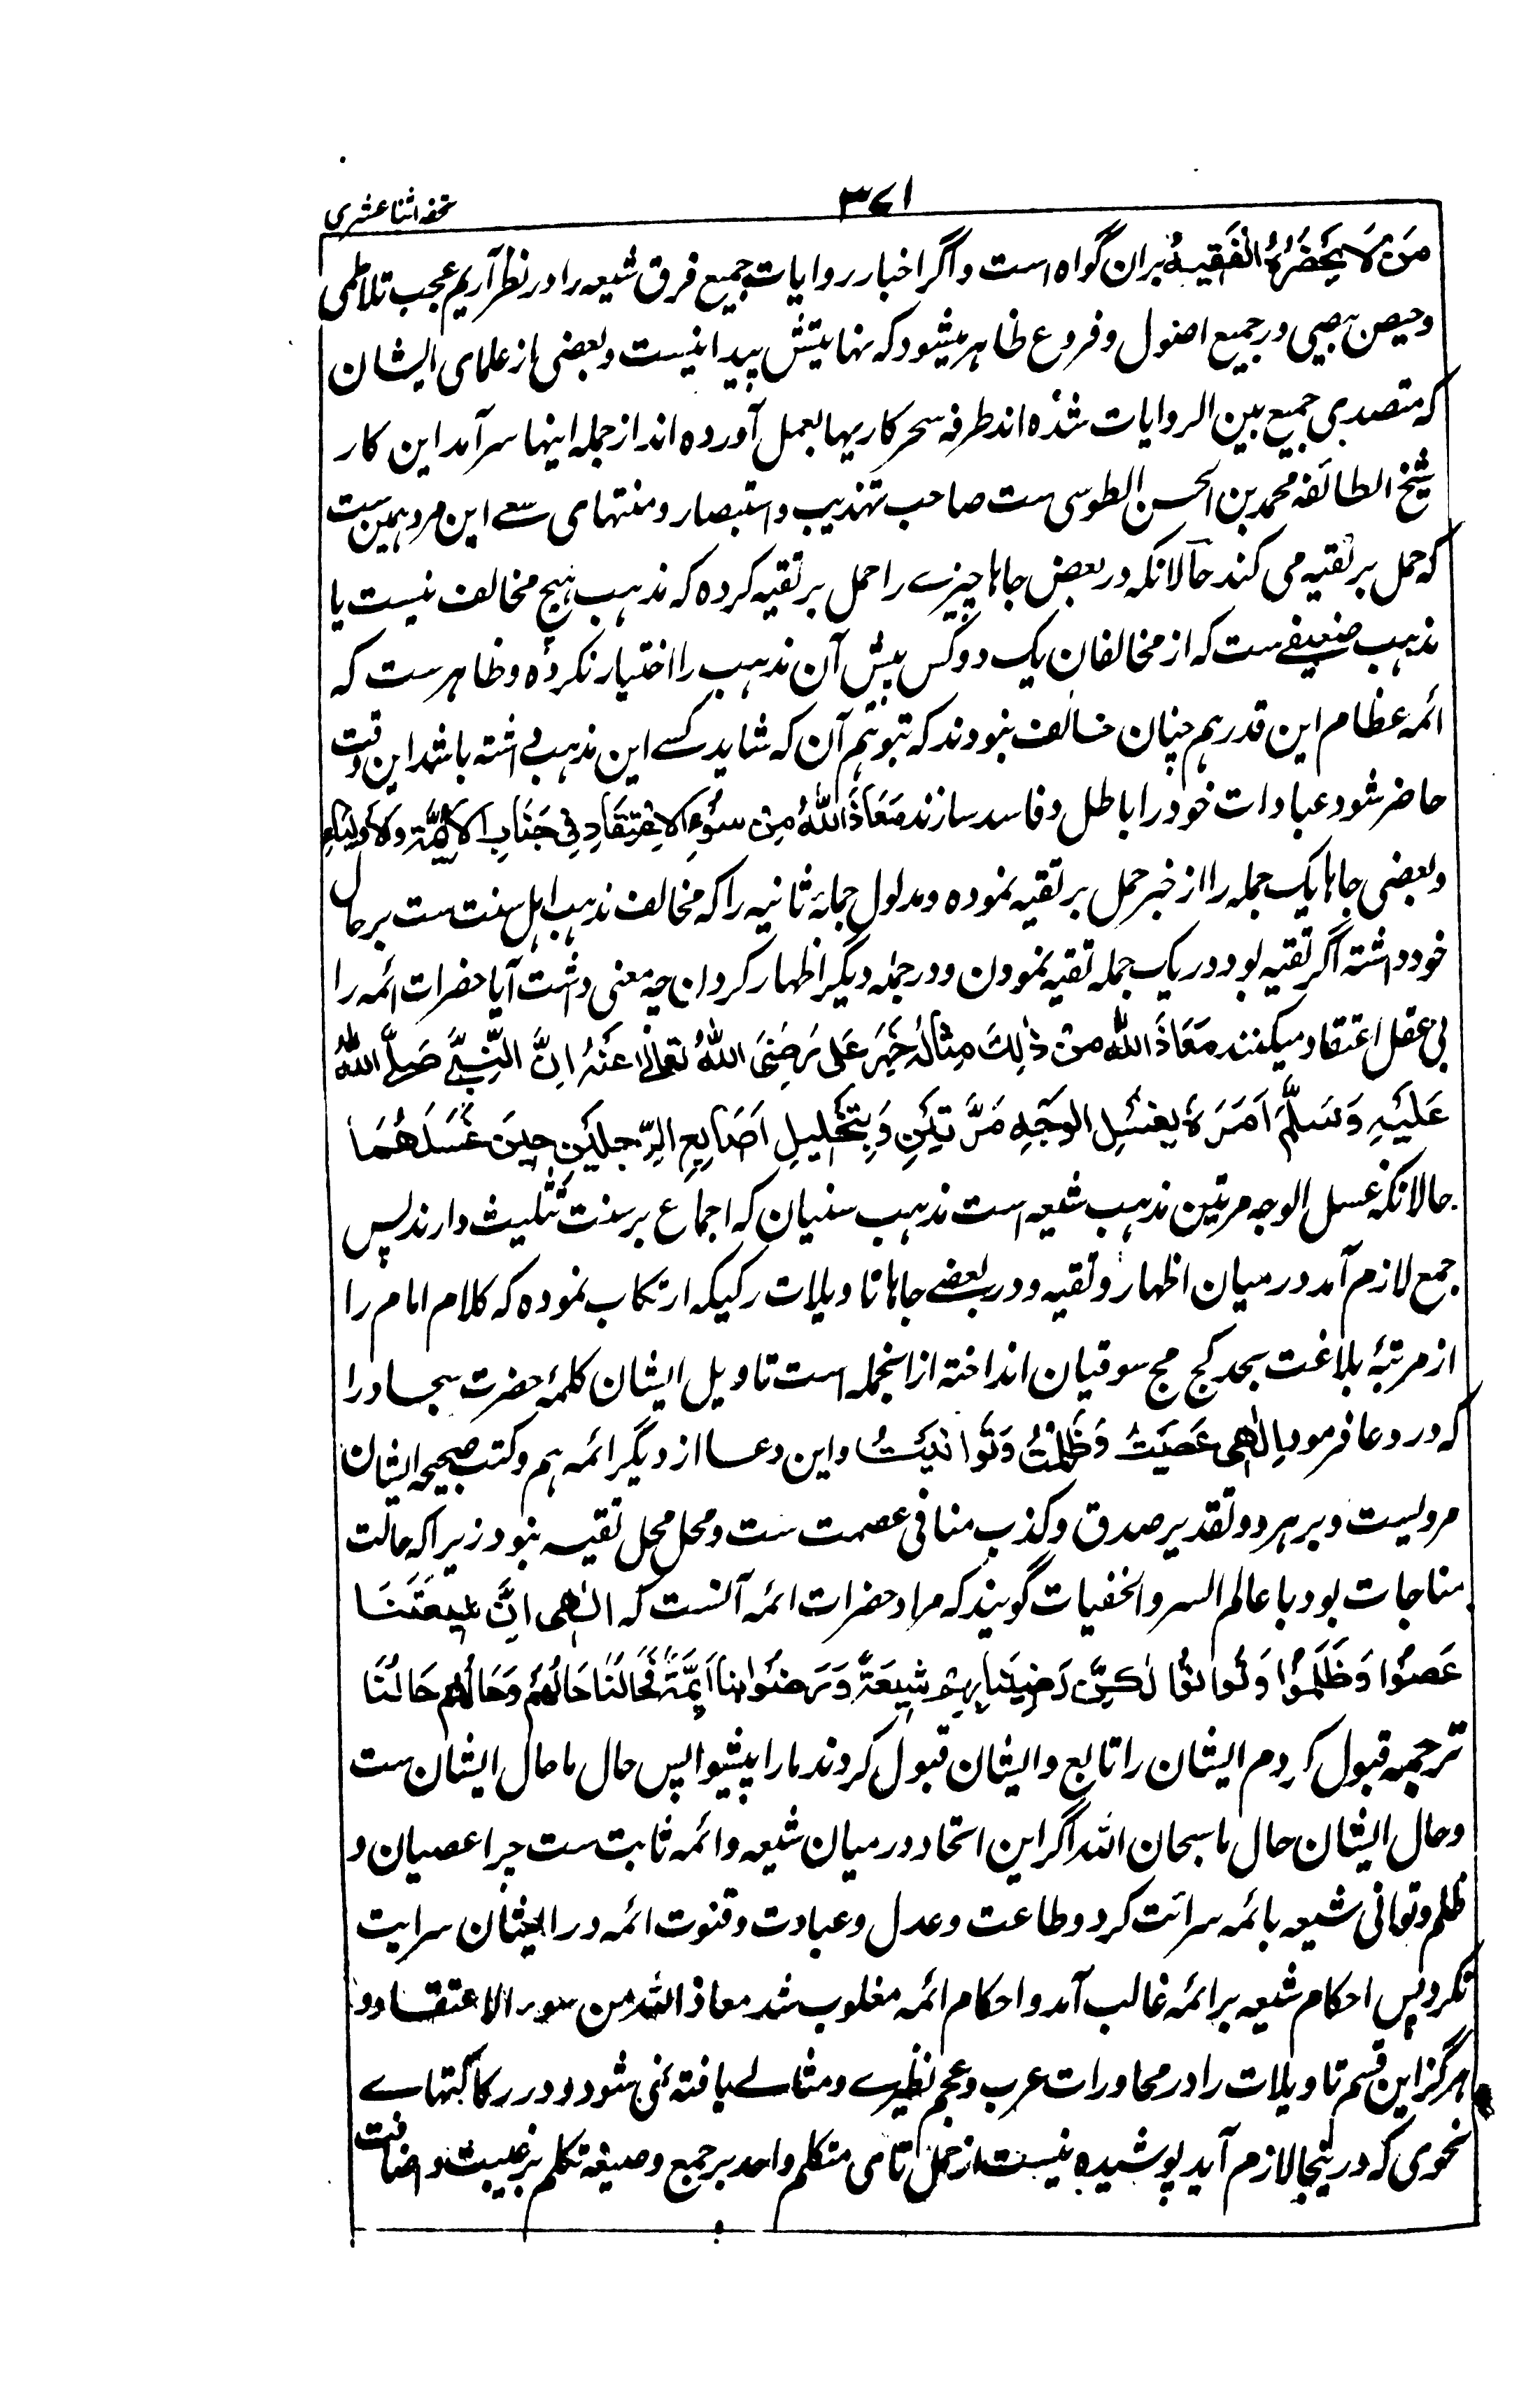 تحفه اثنا عشری
۳۷۱
مَنْ لَا يَحْضُرُهُ الْفَقِيهُ بران گواه است و اگر اخبار روایات جمیع فرق شیعه را در نظر آریم عجب تلاطمی
و حیص بیصی در جمیع اصول و فروع ظاهر میشود که نهایتش پیدا نیست و بعضی از علمای ایشان
که متصدی جمع بین الروایات شده اند طرفه سحرکاریها بعمل آورده اند از جمله اینها سرآمد این کار
شیخ الطائفه محمد بن الحسن الطوسی ست صاحب تهذیب و استبصار و منتهای سعے این مرد همین ست
که حمل بر تقیه می کند حالانکه در بعض جاها چیزے را حمل بر تقیه کرده که مذهب هیچ مخالف نیست یا
مذهب ضعیفے ست که از مخالفان یک دو کس بیش آن مذهب را اختیار نکرده و ظاهرست که
ائمه عظام این قدر هم چنان خائف نبودند که بتوهم آن که شاید کسے این مذهب داشته باشد این وقت
حاضر شود عبادات خود را باطل و فاسد سازند مَعَاذَ اللهُ مِنْ سُوْءِ الاِعْتِقَادِ فِي جَنَابِ الْاَئِمَّةِ وَالْاَوْلِيَاءِ
و بعضی جاها یک جمله را از خبر حمل بر تقیه نموده و مدلول جملهٔ ثانیه را که مخالف مذهب اهل سنت ست بر حال
خود داشته اگر تقیه بود در یک جمله تقیه نمودن و در جمله دیگر اظهار کردن چه معنی داشت آیا حضرات ائمه را
بی عقل اعتقاد میکنند مَعَاذَ اللهُ مِنْ ذٰلِكَ مِثَالُهُ خَبَرُ عَلَى رَضِيَ اللهُ تَعَالٰى عَنْهُ اِنَّ النَّبِيَّ صَلَّے اللهُ
عَلَيْهِ وَسَلَّمَ اَمَرَهُ بِغَسْلِ الْوَجْهِ مَرَّتَيْنِ وَبِتَخْلِيلِ اَصَابِعِ الرِّجْلَيْنِ حِينَ غَسَلَهُمَا
حالانکه غسل الوجه مرتین مذهب شیعه است نه مذهب سنیان که اجماع بر سنت تثلیث دارند پس
جمع لازم آمد در میان اظهار و تقیه و در بعضے جاها تاویلات رکیکه ارتکاب نموده که کلام امام را
از مرتبهٔ بلاغت بحد کج مج سوقیان انداخته ازانجمله است تاویل ایشان کلمهٔ حضرت سجاد را
که در دعا فرمود اِلٰهِی عَصَيْتُ وَظَلَمْتُ وَتَوَانَيْتُ و این دعا از دیگر ائمه هم و کتب صحیحه ایشان
مرویست و بر هر دو تقدیر صدق و کذب منافی عصمت ست و محل محل تقیه نبود زیرا که حالت
مناجات بود با عالم السر و الخفیات گویند که مراد حضرات ائمه آنست که اِلٰهِی اِنَّ شِيعَتَنَا
عَصَوْا وَظَلَمُوْا وَتَوَانَوْا لٰكِنْ رَضِينَا بِهِمْ شِيعَةً وَرَضُوْا بِنَا اَئِمَّةً فَحَالُنَا حَالُهُمْ وَحَالُهُمْ حَالُنَا
ترجمه قبول کردم ایشان را تابع و ایشان قبول کردند ما را پیشوا پس حال ما حال ایشان ست
و حال ایشان حال ما سبحان الله اگر این اتحاد در میان شیعه و ائمه ثابت ست چرا عصیان و
ظلم و توانی شیعه بائمه سرائت کرد و طاعت و عدل و عبادت و قنوت ائمه در ایشان سرایت
نکرد پس احکام شیعه بر ائمه غالب آمد و احکام ائمه مغلوب شد معاذ الله من سوء الاعتقاد و
هرگز این قسم تاویلات را در محاورات عرب و عجم نظیرے و مثالے یافته نمی شود و در رکاکتهاے
نحوی که درینجا لازم آید پوشیده نیست از حمل تامی متکلم واحد بر جمع و صیغه تکلم بر غیبت و اضافت